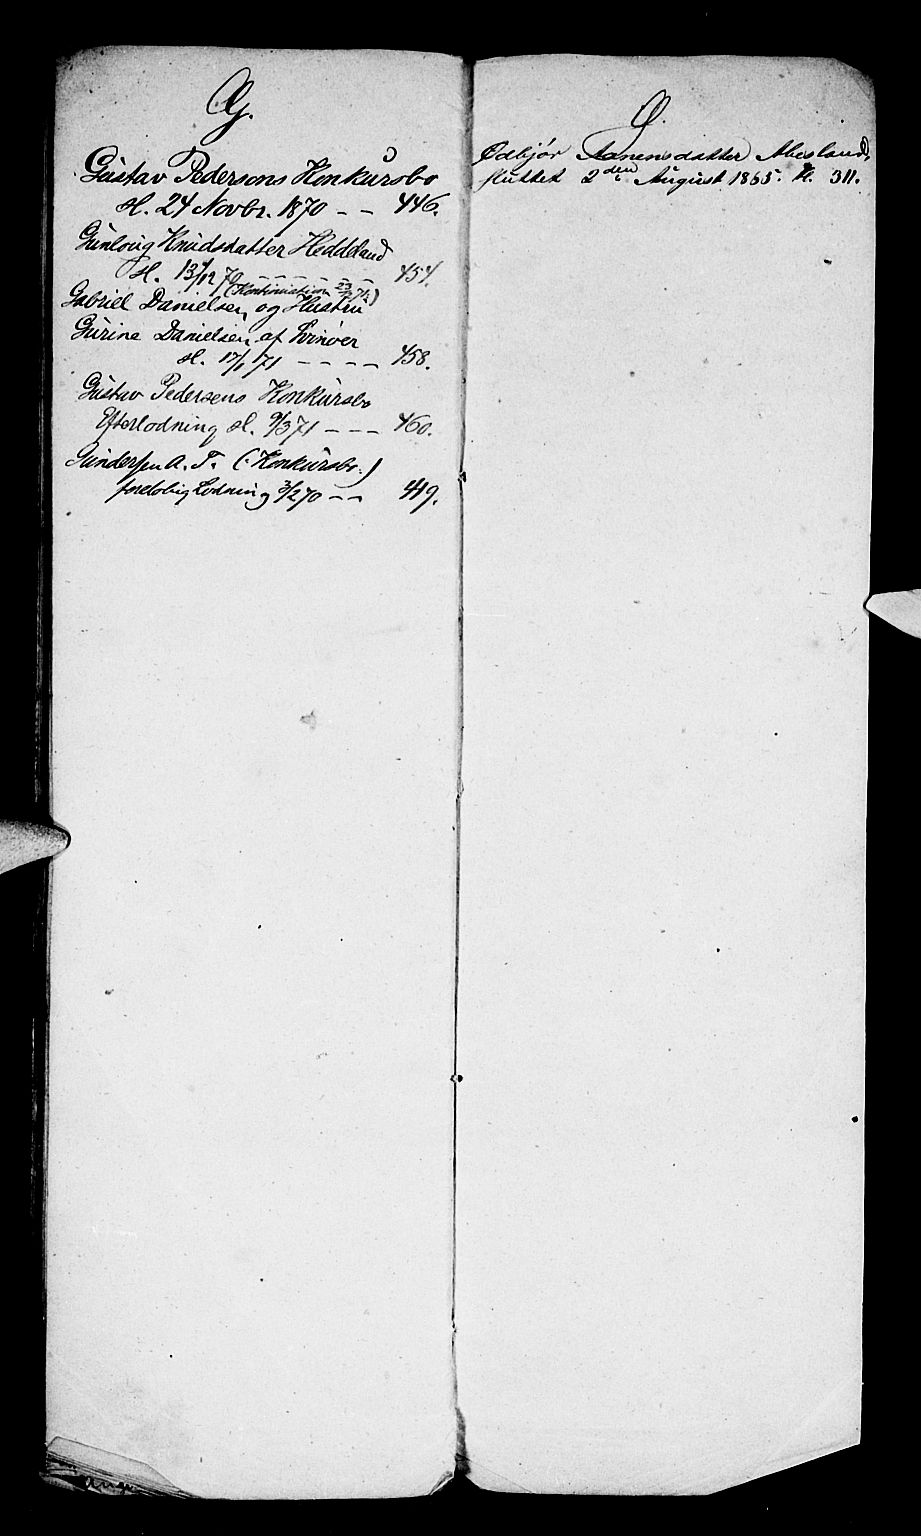 G.
Gustav Pedersens Konkursbo
sl. 24 Novbr. 1870 - - 446.
Gunloug Knudsdatter Heddeland
sl. 13/12 70 - - - - - 454.
(Kontinuation 23/
Gabriel Danielsen og Hustru
Gurine Danielsen af Svinøer
sl. 17/1 71 - - - - 458.
Gustav Pedersens Konkursbo
Efterlodning sl. 9/3 71 - - - 460.
Gundersen A. T. (Konkursbo:)
foreløbig Lodning 3/2 70 - - 419.
Ø.
Ødbjør Aanensdatter Abesland,
sluttet 2den August 1865. 311.